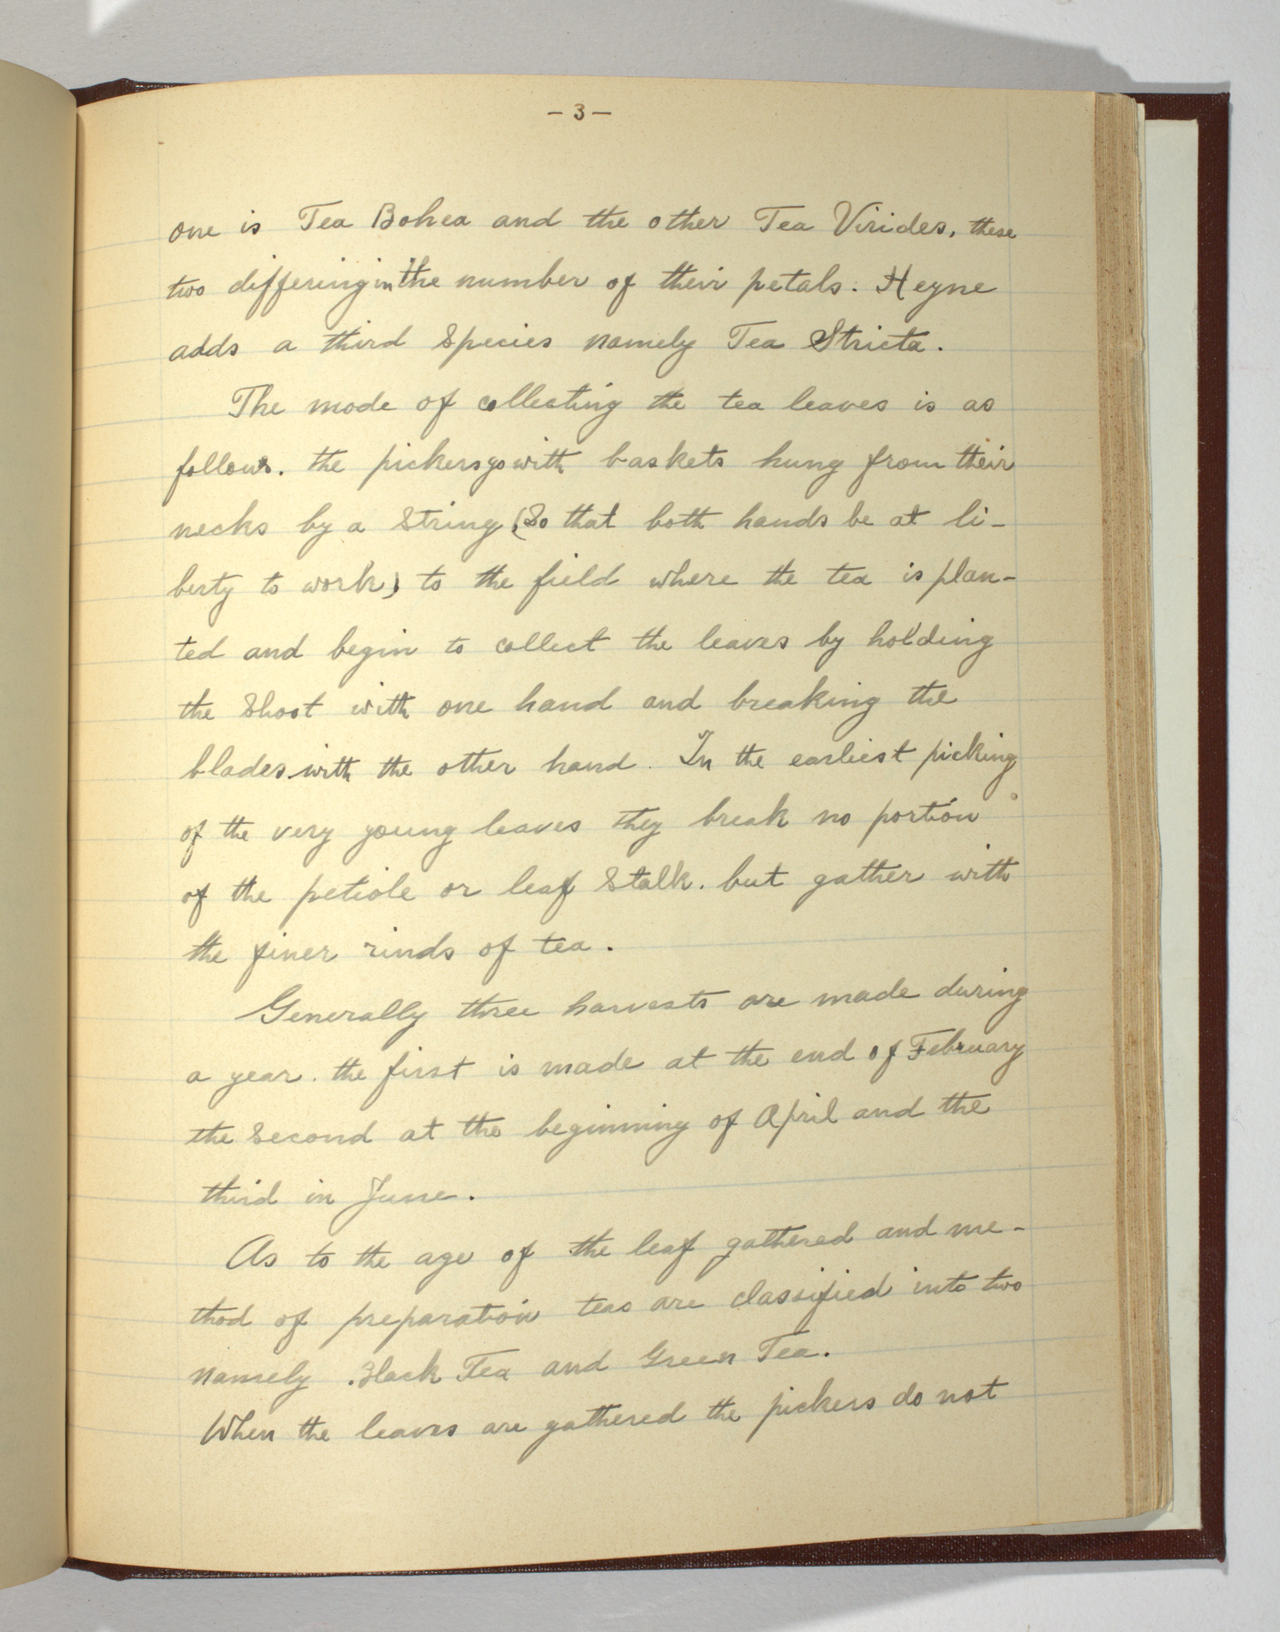 - 3 -
one is Tea Bohea and the other Tea Virides, these
two differing in the number of their petals. Heyne
adds a third Species namely Tea Stricta.
The mode of collecting the tea leaves is as
follows. the pickers go with baskets hung from their
necks by a String (So that both hands be at li-
berty to work) to the field where the tea is plan-
ted and begin to collect the leaves by holding
the Shoot with one hand and breaking the
blades with the other hand. In the earliest picking
of the very young leaves they break no portion
of the petiole or leaf Stalk. but gather with
the finer rinds of tea.
Generally three harvests are made during
a year. the first is made at the end of February
the Second at the beginning of April and the
third in June.
As to the age of the leaf gathered and me-
thod of preparation teas are classified into two
namely Black Tea and Green Tea.
When the leaves are gathered the pickers do not